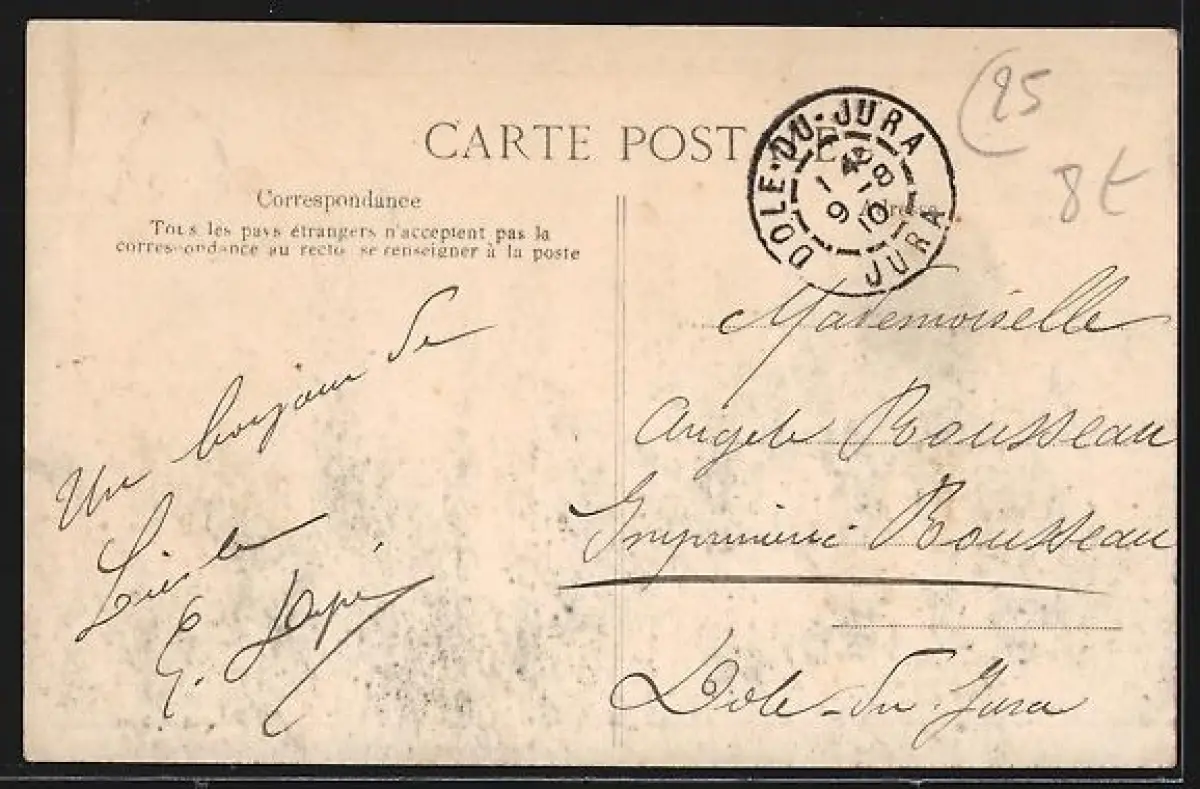 (25
8€
CARTE POSTALE
DOLE-DU-JURA
JURA
9 - 10
Correspondance
Adresse
Tous les pays étrangers n'acceptent pas la
correspondance au recto, se renseigner à la poste
Un bonjour de
E.
Mademoiselle
Angèle Rousseau
Imprimerie Rousseau
Dole-du-Jura